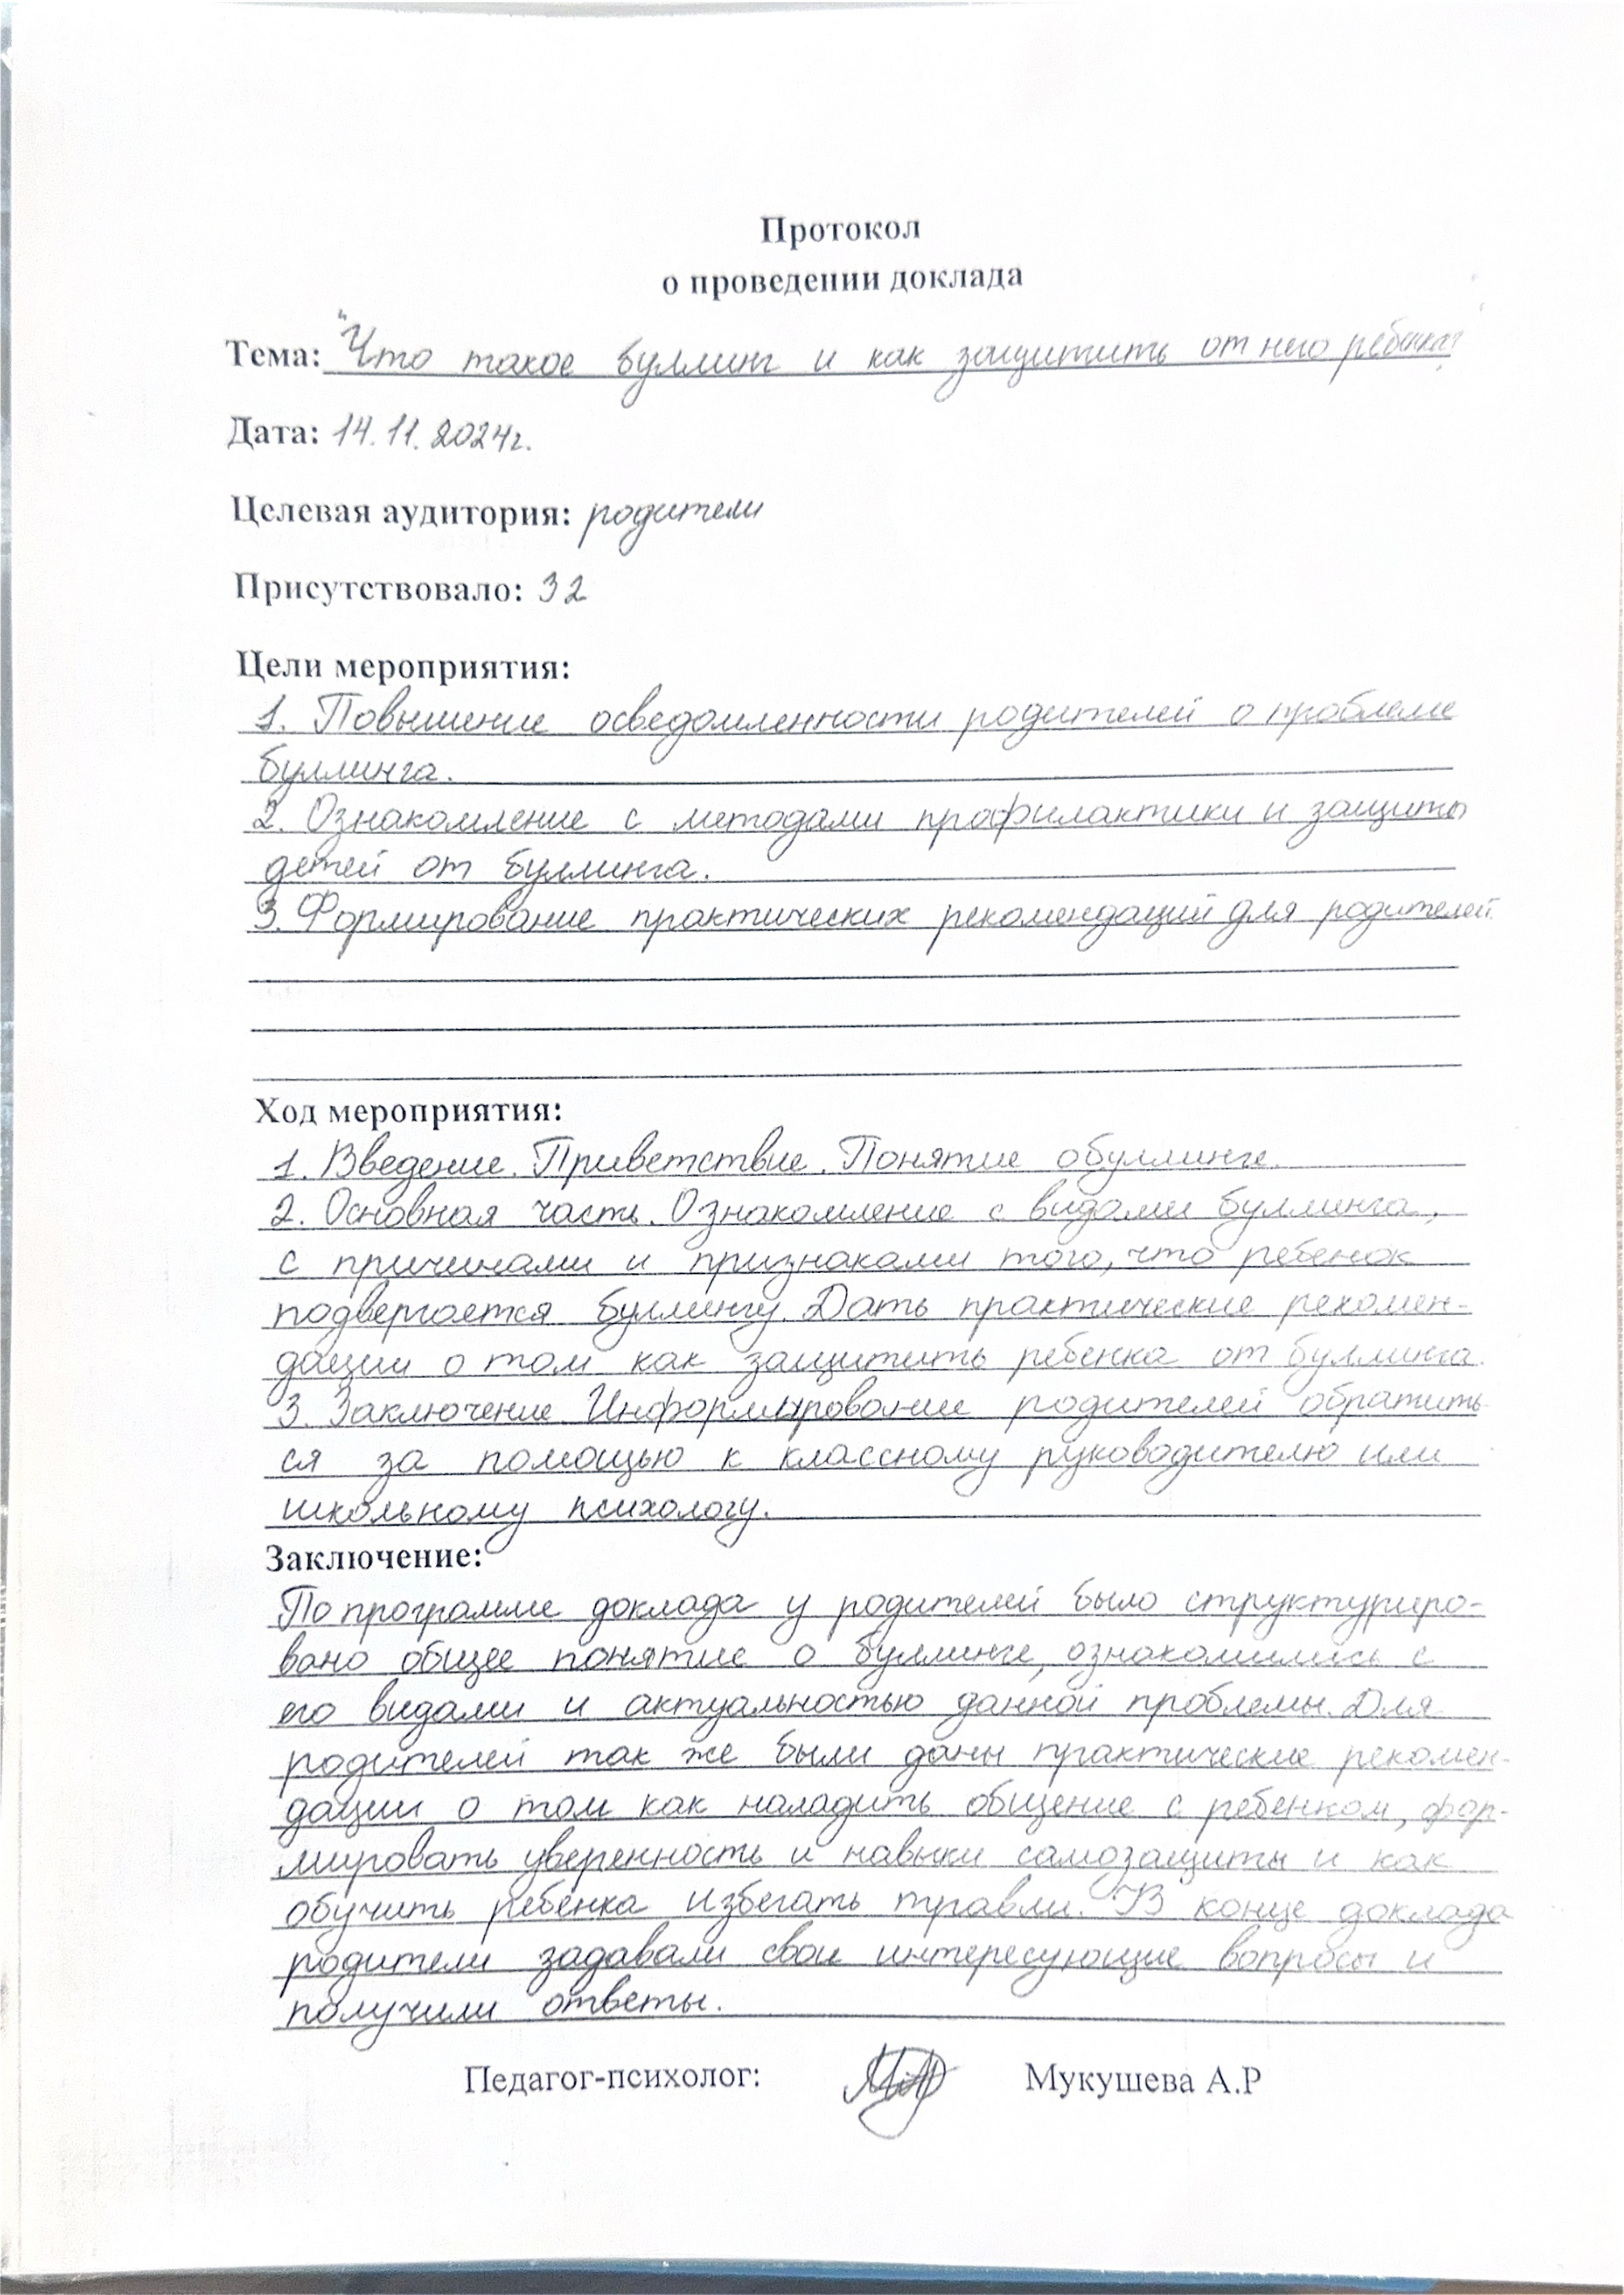 Протокол
о проведении доклада
Тема: "Что такое буллинг и как защитить от него ребенка"
Дата: 14.11.2024г.
Целевая аудитория: родители
Присутствовало: 32
Цели мероприятия:
1. Повышение осведомленности родителей о проблеме
буллинга.
2. Ознакомление с методами профилактики и защиты
детей от буллинга.
3. Формирование практических рекомендаций для родителей.
Ход мероприятия:
1. Введение. Приветствие. Понятие о буллинге.
2. Основная часть. Ознакомление с видами буллинга,
с причинами и признаками того, что ребенок
подвергается буллингу. Дать практические рекомен-
дации о том как защитить ребенка от буллинга.
3. Заключение. Информирование родителей обратить-
ся за помощью к классному руководителю или
школьному психологу.
Заключение:
По программе доклада у родителей было структуриро-
вано общее понятие о буллинге, ознакомились с
его видами и актуальностью данной проблемы. Для
родителей так же были даны практические рекомен-
дации о том как наладить общение с ребенком, фор-
мировать уверенность и навыки самозащиты и как
обучить ребенка избегать травли. В конце доклада
родители задавали свои интересующие вопросы и
получили ответы.
Педагог-психолог: Мукушева А.Р